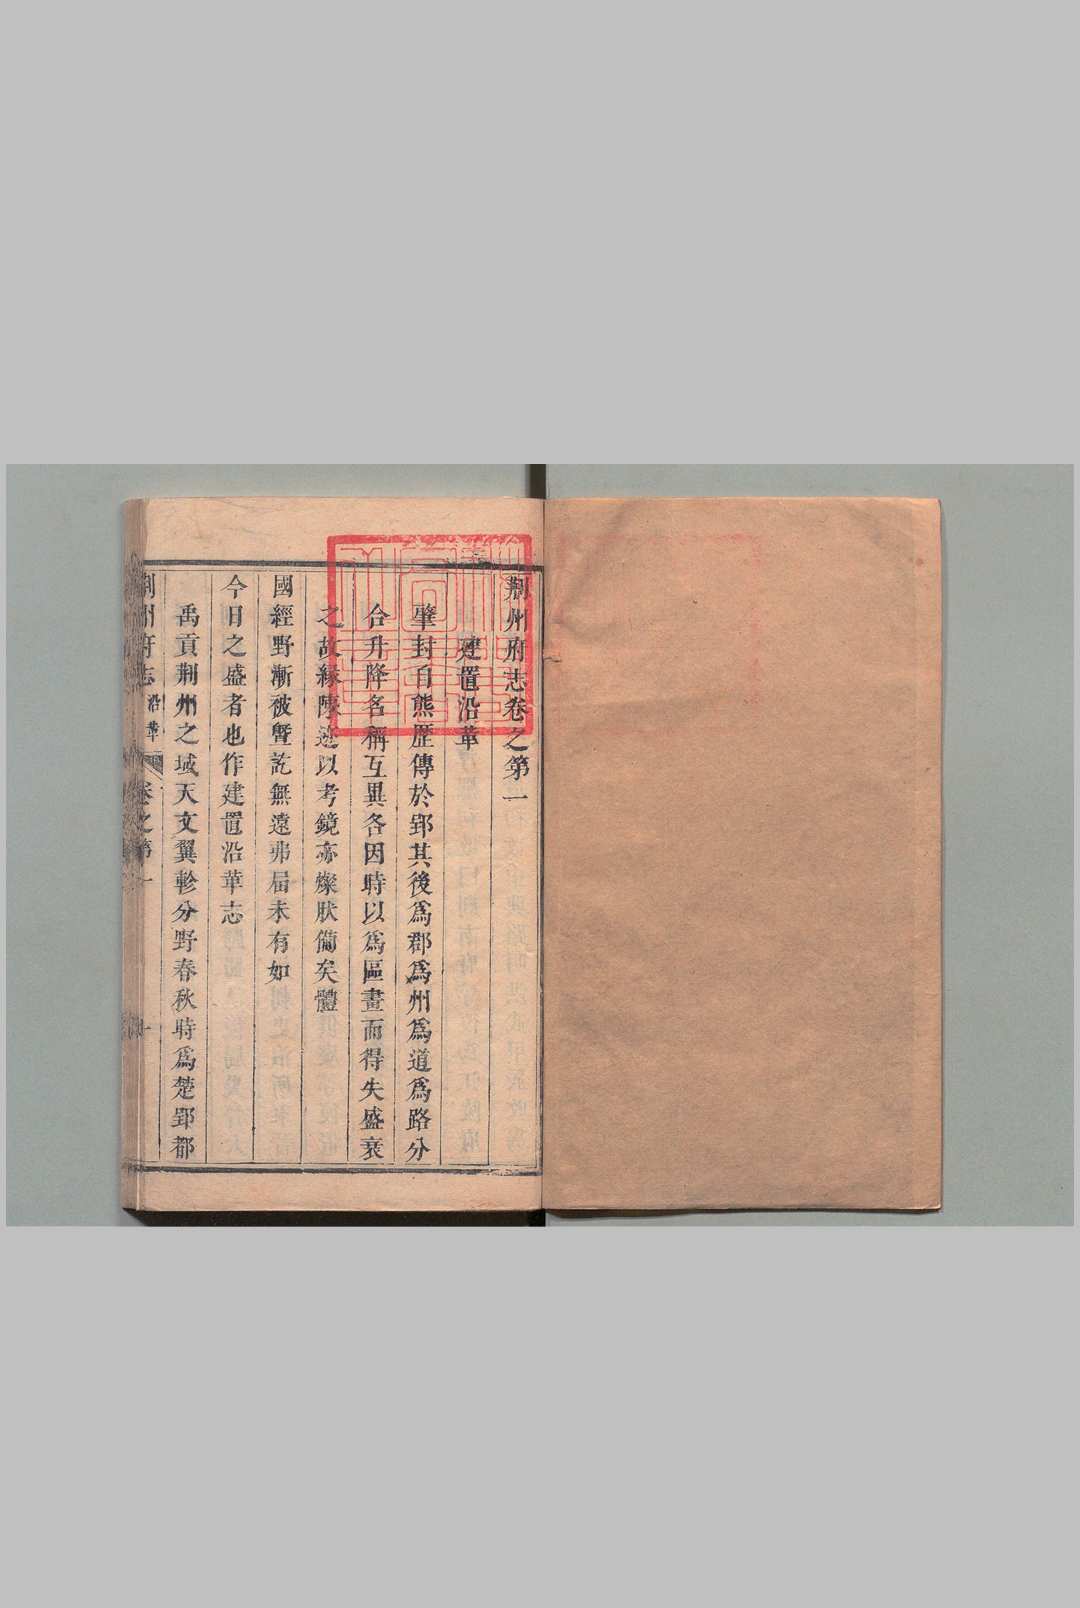 荆州府志卷之第一
建置沿革
肇封自熊歷傳於郢其後爲郡爲州爲道爲路分
合升降名稱互異各因時以爲區畫而得失盛衰
之故緣陳迹以考鏡亦燦肰僃矣體
國經野漸被曁訖無遠弗屆未有如
今日之盛者也作建置沿革志
禹貢荆州之域天文翼軫分野春秋時爲楚郢都
荆州府志 沿革 卷之第一 一